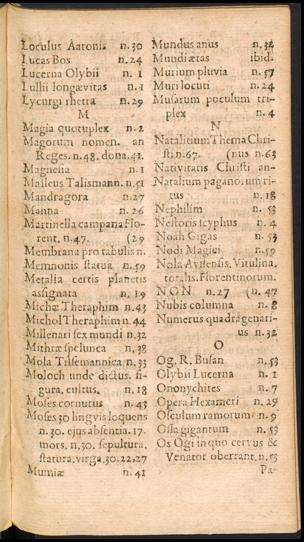 Loculus Aaronis n. 30
Lucas Bos n. 24
Lucerna Olybii n. 1
Lullii longævitas n. 1
Lycurgi rhetra n. 29
M
Magia quotuplex n. 2
Magorum nomen. an
Reges. n. 48. dona. 42.
Magnetia n. 1
Malleus Talismann. n. 51
Mandragora n. 27
Manna n. 26
Martinella campana Flo-
rent. n. 47. (29
Membrana pro tabulis n.
Memnonis statua n. 59
Metalla certis planetis
assignata n. 19
Michæ Theraphim n. 43
Michol Theraphim n. 44
Millenari sex mundi n. 32
Mithræ spelunca n. 38
Mola Tilsemannica n. 35
Moloch unde dictus. fi-
gura. cultus. n. 18
Moses cornutus n. 43
Moses 30 lingvis loquens
n. 30. ejus absentia. 17.
mors. n. 30. sepultura.
statura. virga. 30. 22. 27
Mumiæ n. 41
Mundus anus n. 32
Mundi ætas ibid.
Murium pluvia n. 57
Muri locuti n. 24
Musarum poculum tri-
plex n. 4
N
Natalitium Thema Chri-
sti n. 67. (nus n. 63
Nativitatis Christi an-
Natalium paganorum ri-
tus n. 18
Nephilim n. 53
Nestoris scyphus n. 4
Noah Gigas n. 53
Nodi Magici n. 59
Nola Avilensis. Vitulina.
totalis. Florentinorum.
NON n. 27 (n. 47
Nubis columna n. 8
Numerus quadragenari-
us n. 32
O
Og. R. Basan n. 53
Olybii Lucerna n. 1
Ononychites n. 7
Opera Hexameri n. 29
Osculum ramorum n. 9
Ossa gigantum n. 53
Os Ogi in quo cervus &
Venator oberrant. n. 53
Pa-